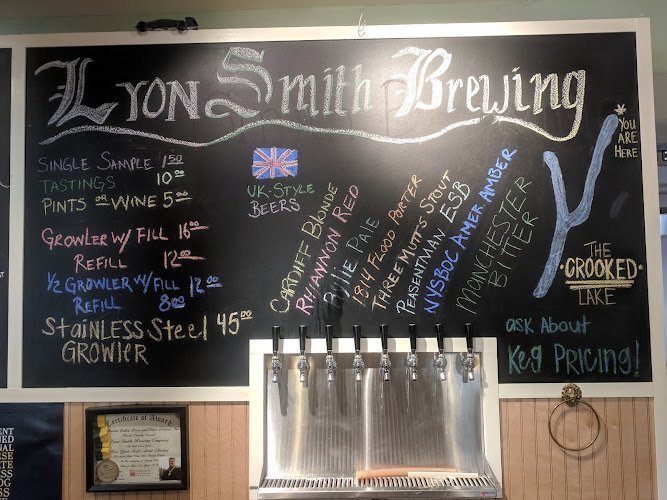 Lyon Smith Brewing
Single Sample 1.50
Tastings 10.00
Pints or Wine 5.00
Growler w/ Fill 16.00
Refill 12.00
1/2 Growler w/ Fill 12.00
Refill 8.00
Stainless Steel 45.00
Growler
UK-Style
Beers
Cardiff Blonde
Rhiannon Red
Pale
1814 Flood Porter
Three Mutts Stout
Peasentman ESB
NYSBOC Amer Amber
Manchester
Bitter
You
Are
Here
The
Crooked
Lake
ask About
Keg Pricing!
Certificate of Award